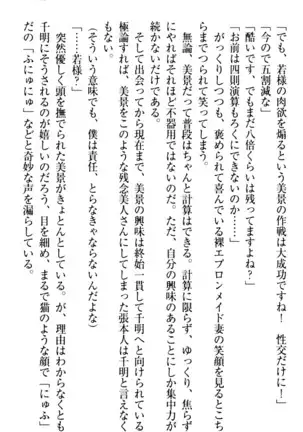 「でも、若様の肉欲を煽るという美景の作戦は大成功ですね！　性交だけに！」
「今ので五割減な」
「酷いです、でもまだ八倍くらいは残ってますよね？」
「お前は四則演算もろくにできないのか……」
がっくりしつつも、褒められて喜んでいる裸エプロンメイド妻の笑顔を見るとこち
らまでつられて笑ってしまう。
無論、美景だって普段はちゃんと計算はできる。計算に限らず、ゆっくり、焦らず
にやればそれほど不器用ではないのだ。ただ、自分の興味のあることにしか集中力が
いかないだけである。
そして出会ってから現在まで、美景の興味は終始一貫して千明へと向けられている。
極論すれば、美景をこのような残念美人さんにしてしまった張本人は千明と言えなく
もない。
（そういう意味でも、僕は責任、とらなきゃならないんだよな）
「……若様？」
突然優しく頭を撫でられた美景がきょとんとしている。が、理由はわからなくとも
千明にそうされるのが嬉しいのだろう、目を細め、まるで猫のような顔で「にゅふ
だの「ふにゅにゅ」などと奇妙な声を漏らしている。